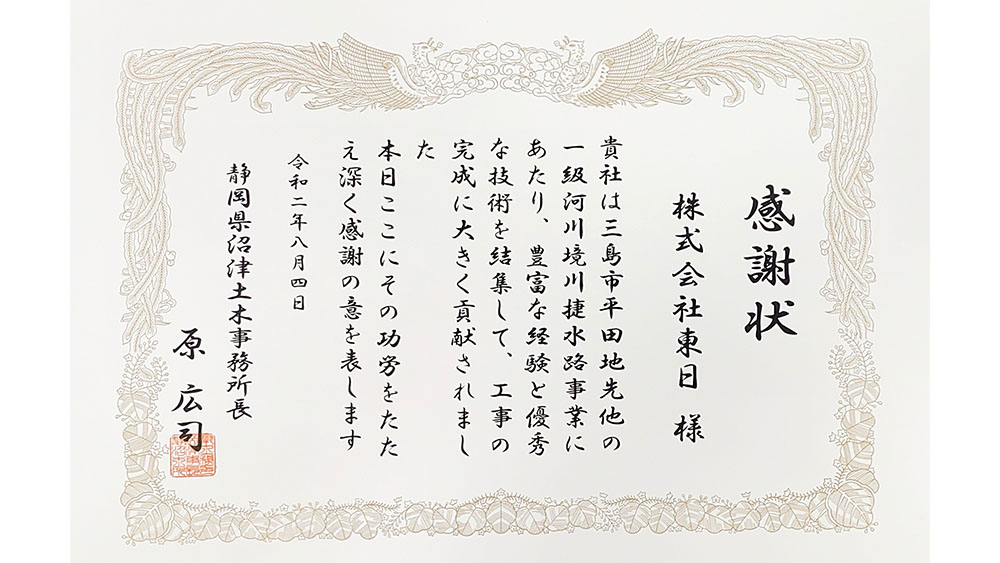 感謝状
株式会社東日 様
貴社は三島市平田地先他の
一級河川境川捷水路事業に
あたり、豊富な経験と優秀
な技術を結集して、工事の
完成に大きく貢献されまし
た
本日ここにその功労をたた
え深く感謝の意を表します
令和二年八月四日
静岡県沼津土木事務所長
原 広司